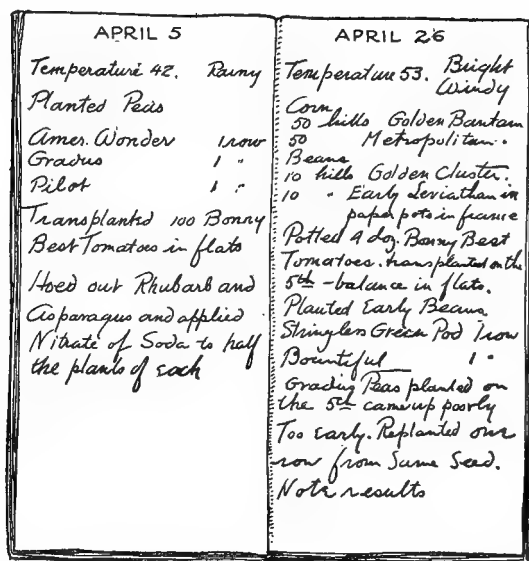 APRIL 5
Temperature 42. Rainy
Planted Peas
Amer. Wonder 1 row
Gradus 1 "
Pilot 1 "
Transplanted 100 Bonny
Best Tomatoes in flats
Hoed out Rhubarb and
Asparagus and applied
Nitrate of Soda to half
the plants of each
APRIL 26
Temperature 53. Bright
Windy
Corn
50 hills Golden Bantam
50 Metropolitan.
Beans
10 hills Golden Cluster.
10 " Early Leviathan in
paper pots in frame
Potted 4 doz. Bonny Best
Tomatoes. transplanted on the
5th - balance in flats.
Planted Early Beans
Stringless Green Pod 1 row
Bountiful 1 "
Peas planted on
the 5th came up poorly
Too early. Replanted one
row from Same Seed.
Note results